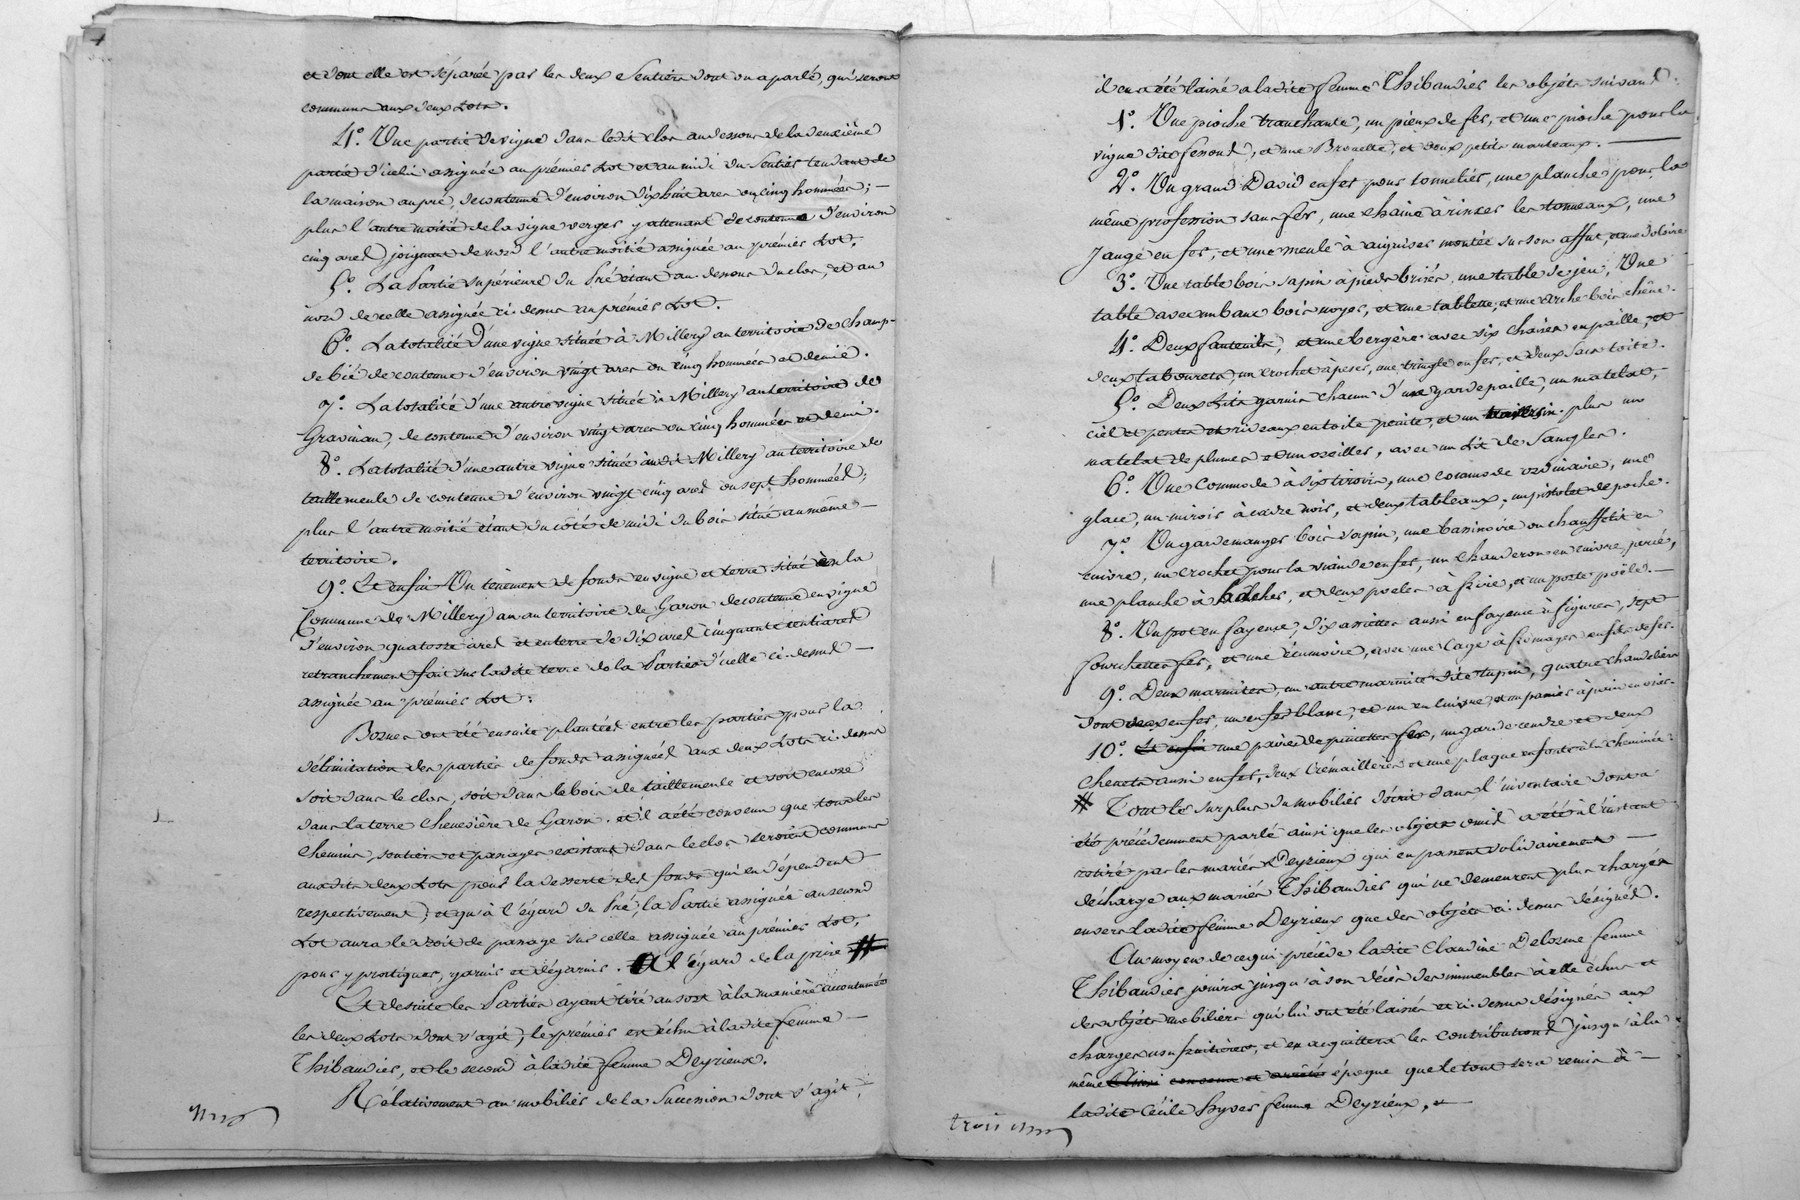 et dont elle est séparée par les deux Sentiers dont on a parlé, qui seront
communs aux deux Lots.
4.° Une partie de vigne dans ledit clos au dessous de la deuxième
partie d'icelui assignée au prémier Lot et au midi du Sentier tendant de
la maison au pré, de contenue d'environ dixhuit ares ou cinq hommées; —
plus l'autre moitié de la vigne verger y attenant de contenue d'environ
cinq ares joignant de nord l'autre moitié assignée au prémier Lot.
5.° La Partie supérieure du Pré étant au dessous du clos, et au
nord de celle assignée ci-dessus au prémier Lot.
6.° La totalité d'une vigne située à Millery au territoire de Champ-
de bié de contenue d'environ vingt ares ou cinq hommées et demie.
7.° La totalité d'une autre vigne située à Millery au territoire de
Gravinan, de contenue d'environ vingt ares ou cinq hommées et demi.
8.° La totalité d'une autre vigne située audit Millery au territoire de
taillemeule de contenue d'environ vingt cinq ares ou sept hommées;
plus l'autre moitié étant du côté de midi du bois situé au même —
territoire.
9.° Et enfin Un tènement de fonds en vigne et terre situé en la
Commune de Millery au territoire de Garon de contenue en vigne
d'environ quatorze ares et en terre de dix ares cinquante centiares
retranchement fait sur ladite terre de la Partie d'icelle ci-dessus —
assignée au prémier Lot.
Bornes ont été ensuite plantées entre les parties pour la
délimitation des parties de fonds assignées aux deux Lots ci-dessus
soit dans le clos, soit dans le bois de taillemeule et soit encore
dans la terre Chenevière de Garon. et il a été convenu que tous les
Chemins, sentiers et passages existant dans le clos seroient communs
auxdits deux Lots pour la desserte des fonds qui en dépendent
respectivement; et qu'à l'égard du Pré, la Partie assignée au second
Lot aura le droit de passage sur celle assignée au prémier Lot,
pour y pratiquer, garnis et dégarnis. A l'égard de la prise #
Et desuite les Parties ayant tiré au sort à la manière accoutumée
les deux Lots dont s'agit, le prémier est échu à ladite femme —
Thibaudier, et le second à ladite femme Deyrieux.
Rélativement au mobilier de la Succession dont s'agit,
il en a été laissé a ladite femme Thibaudier les objéts suivans
1.° Une pioche tranchante, un pieux de fer, et une pioche pour la
vigne dite fessoud, et une Brouette, et deux petits marteaux. —
2.° Un grand David en fer pour tonnelier, une planche pour la
même profession sans fer, une chaine à rinser les tonneaux, une
Jauge en fer, et une meule à aiguiser montée sur son affut, et une doloire
3.° Une table bois sapin à pieds brisés, une table de jeu, Une
table avec un banc bois noyer, et une tablette, et une arche bois chêne.
4.° Deux fauteuils, et une bergère avec six chaises en paille, et
deux tabourets, un crochet à peser, une tringle en fer, et deux sacs toile.
5.° Deux Lits garnis chacun d'une garde paille, un matelat,
ciel et pentes et rideaux en toile peinte, et un traversin. plus un
matelat de plumes et un oreiller, avec un Lit de Sangles.
6.° Une Commode à six tiroirs, une commode ordinaire, une
glace, un miroir à cadre noir, et deux tableaux, un pistolet de poche.
7.° Un gardemanger bois sapin, une bassinoire ou chauffelit en
cuivre, un crochet pour la viande en fer, un chauderon en cuivre percé,
une planche à hacher, et deux poeles à frire, et un porte poële. —
8.° Un pot en fayence, dix assiettes aussi en fayence à figures, sept
fourchettes fer, et une écumoire, avec une Cage à fromages en fil de fer.
9.° Deux marmites, un autre marmite dite tupin, quatre chandeliers
dont deux en fer, un en fer blanc, et un en cuivre, et un panier à pain en osier.
10.° Et enfin une paire de pincettes fer, un garde cendre et deux
Chenets aussi en fer, deux Crémaillères et une plaque en fonte à la cheminée.
# Tout le surplus du mobilier décrit dans l'inventaire dont a
été précédemment parlé ainsi que les objets omis a été à l'instant
retiré par les mariés Deyrieux qui en passent solidairement —
décharge aux mariés Thibaudier qui ne demeurent plus chargés
envers ladite femme Deyrieux que des objéts ci-dessus désignés.
Au moyen de ce qui précède ladite Claudine Delorme femme
Thibaudier jouira jusqu'à son décès des immeubles à elle échus et
des objéts mobiliers qui lui ont été laissés et ci-dessus désignés aux
charges usufruitières, et en acquittera les contributions jusqu'à la
même époque que le tout sera remis à —
ladite Cécile hyver femme Deyrieux, et —